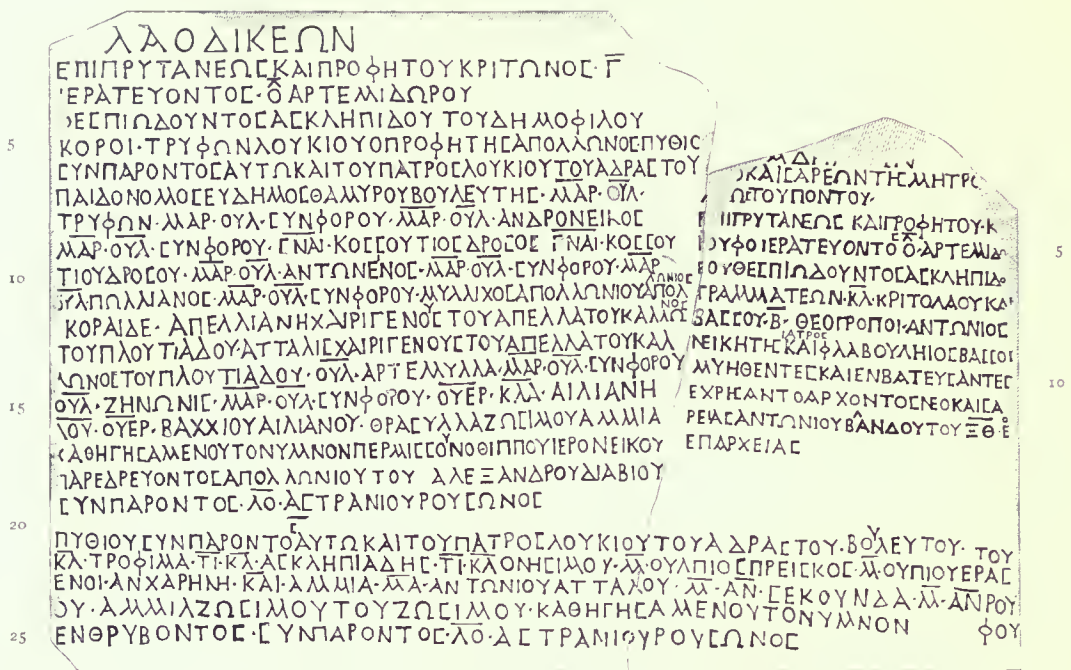 ΛΑΟΔΙΚΕΩΝ
ΕΠΙΠΡΥΤΑΝΕΩϹΚΑΙΠΡΟΦΗΤΟΥΚΡΙΤΩΝΟϹ·Γ̅
ΙΕΡΑΤΕΥΟΝΤΟϹ·Ο̅ΑΡΤΕΜΙΔΩΡΟΥ
ΘΕϹΠΙΩΔΟΥΝΤΟϹΑϹΚΛΗΠΙΔΟΥ ΤΟΥΔΗΜΟΦΙΛΟΥ
5
ΚΟΡΟΙ·ΤΡΥΦΩΝΛΟΥΚΙΟΥΟΠΡΟΦΗΤΗϹΑΠΟΛΛΩΝΟϹΠΥΘΙΟ
ϹΥΝΠΑΡΟΝΤΟϹΑΥΤΩΚΑΙΤΟΥΠΑΤΡΟϹΛΟΥΚΙΟΥΤΟΥΑΔΡΑϹΤΟΥ
ΠΑΙΔΟΝΟΜΟϹΕΥΔΗΜΟϹΘΑΜΥΡΟΥΒΟΥΛΕΥΤΗϹ·ΜΑΡ·ΟΥΛ·
ΤΡΥΦΩΝ·ΜΑΡ·ΟΥΛ·ϹΥΝΦΟΡΟΥ·ΜΑΡ·ΟΥΛ·ΑΝΔΡΟΝΕΙΚΟϹ
ΜΑΡ·ΟΥΛ·ϹΥΝΦΟΡΟΥ·ΓΝΑΙ·ΚΟϹϹΟΥΤΙΟϹΔΡΟϹΟϹ ΓΝΑΙ·ΚΟϹϹΟΥ
10
ΤΙΟΥΔΡΟϹΟΥ·ΜΑΡ·ΟΥΛ·ΑΝΤΩΝΕΝΟϹ·ΜΑΡ·ΟΥΛ·ϹΥΝΦΟΡΟΥ·ΜΑΡ
ΟΥΛΠΩΛΛΙΑΝΟϹ·ΜΑΡ·ΟΥΛ·ϹΥΝΦΟΡΟΥ·ΜΥΛΛΙΧΟϹΑΠΟΛΛΩΝΙΟΥΑΠΟΛΛΩΝΙΟϹ
ΚΟΡΑΙΔΕ·ΑΠΕΛΛΙΑΝΗΧΑΙΡΙΓΕΝΟΥϹΤΟΥΑΠΕΛΛΑΤΟΥΚΑΛΛΩΝΟϹ
ΤΟΥΠΛΟΥΤΙΑΔΟΥ·ΑΤΤΑΛΙϹΧΑΙΡΙΓΕΝΟΥϹΤΟΥΑΠΕΛΛΑΤΟΥΚΑΛ
ΛΩΝΟϹΤΟΥΠΛΟΥΤΙΑΔΟΥ·ΟΥΛ·ΑΡΤΕΜΥΛΛΑ·ΜΑΡ·ΟΥΛ·ϹΥΝΦΟΡΟΥ
15
ΟΥΛ·ΖΗΝΩΝΙϹ·ΜΑΡ·ΟΥΛ·ϹΥΝΦΟΡΟΥ·ΟΥΕΡ·ΚΛΛ·ΑΙΛΙΑΝΗ
ΛΟΥ·ΟΥΕΡ·ΒΑΧΧΙΟΥΑΙΛΙΑΝΟΥ·ΘΡΑϹΥΛΛΑΖΩϹΙΜΟΥΑΜΜΙΑ
ΚΑΘΗΓΗϹΑΜΕΝΟΥΤΟΝΥΜΝΟΝΠΕΡΜΙϹϹΟΥΝΟΘΙΠΠΟΥΙΕΡΟΝΕΙΚΟΥ
ΠΑΡΕΔΡΕΥΟΝΤΟϹΑΠΟΛΛΩΝΙΟΥΤΟΥ ΑΛΕΞΑΝΔΡΟΥΔΙΑΒΙΟΥ
ϹΥΝΠΑΡΟΝΤΟϹ·ΛΟ·ΑϹΤΡΑΝΙΟΥΡΟΥϹΩΝΟϹ
20
ΠΥΘΙΟΥϹΥΝΠΑΡΟΝΤΟϹΑΥΤΩΚΑΙΤΟΥΠΑΤΡΟϹΛΟΥΚΙΟΥΤΟΥΑΔΡΑϹΤΟΥ·ΒΟΥΛΕΥΤΟΥ·ΤΟΥ
ΚΛ·ΤΡΟΦΙΜΑ·ΤΙ·ΚΛ·ΑϹΚΛΗΠΙΑΔΗϹ·ΤΙ·ΚΛΟΝΗϹΙΜΟΥ·Μ·ΟΥΛΠΙΟϹΠΡΕΙϹΚΟϹ·Μ·ΟΥΠΙΟΥΕΡΑϹ
ΕΝΟΙ·ΑΝΧΑΡΗΝΗ·ΚΑΙ·ΑΜΜΙΑ·ΜΑ·ΑΝΤΩΝΙΟΥΑΤΤΑΛΟΥ·Μ·ΑΝ·ϹΕΚΟΥΝΔΑ·Μ·ΑΝΡΟΥ
ΟΥ·ΑΜΜΙΑΖΩϹΙΜΟΥΤΟΥΖΩϹΙΜΟΥ·ΚΑΘΗΓΗϹΑΜΕΝΟΥΤΟΝΥΜΝΟΝ ΦΟΥ
25
ΕΝΘΡΥΒΟΝΤΟϹ·ϹΥΝΠΑΡΟΝΤΟϹ·ΛΟ·ΑϹΤΡΑΝΙΟΥΡΟΥϹΩΝΟϹ
ΚΑΙϹΑΡΕΩΝΤΗϹΜΗΤΡΟ
ΤΟΥΠΟΝΤΟΥ·
ΕΠΙΠΡΥΤΑΝΕΩϹ ΚΑΙΠΡΟΦΗΤΟΥ·Κ
5
ΡΟΥΦΟΙΕΡΑΤΕΥΟΝΤΟ Ο̅·ΑΡΤΕΜΙΔ
ΡΟΥΘΕϹΠΙΩΔΟΥΝΤΟϹΑϹΚΛΗΠΙΔ
ΓΡΑΜΜΑΤΕΩΝ·ΚΛ·ΚΡΙΤΟΛΑΟΥΚΑΙ
ΒΑϹϹΟΥ·Β̅·ΘΕΟΠΡΟΠΟΙ·ΑΝΤΩΝΙΟϹ
ΝΕΙΚΗΤΗϹΙΑΤΡΟϹΚΑΙΦΛΑΒΟΥΛΗΙΟϹΒΑϹϹΟϹ
10
ΜΥΗΘΕΝΤΕϹΚΑΙΕΝΒΑΤΕΥϹΑΝΤΕϹ
ΕΧΡΗϹΑΝΤΟΑΡΧΟΝΤΟϹΝΕΟΚΑΙϹΑ
ΡΕΙΑϹΑΝΤΩΝΙΟΥΒΛΑΝΔΟΥΤΟΥΞΘ·Ε
ΕΠΑΡΧΕΙΑϹ